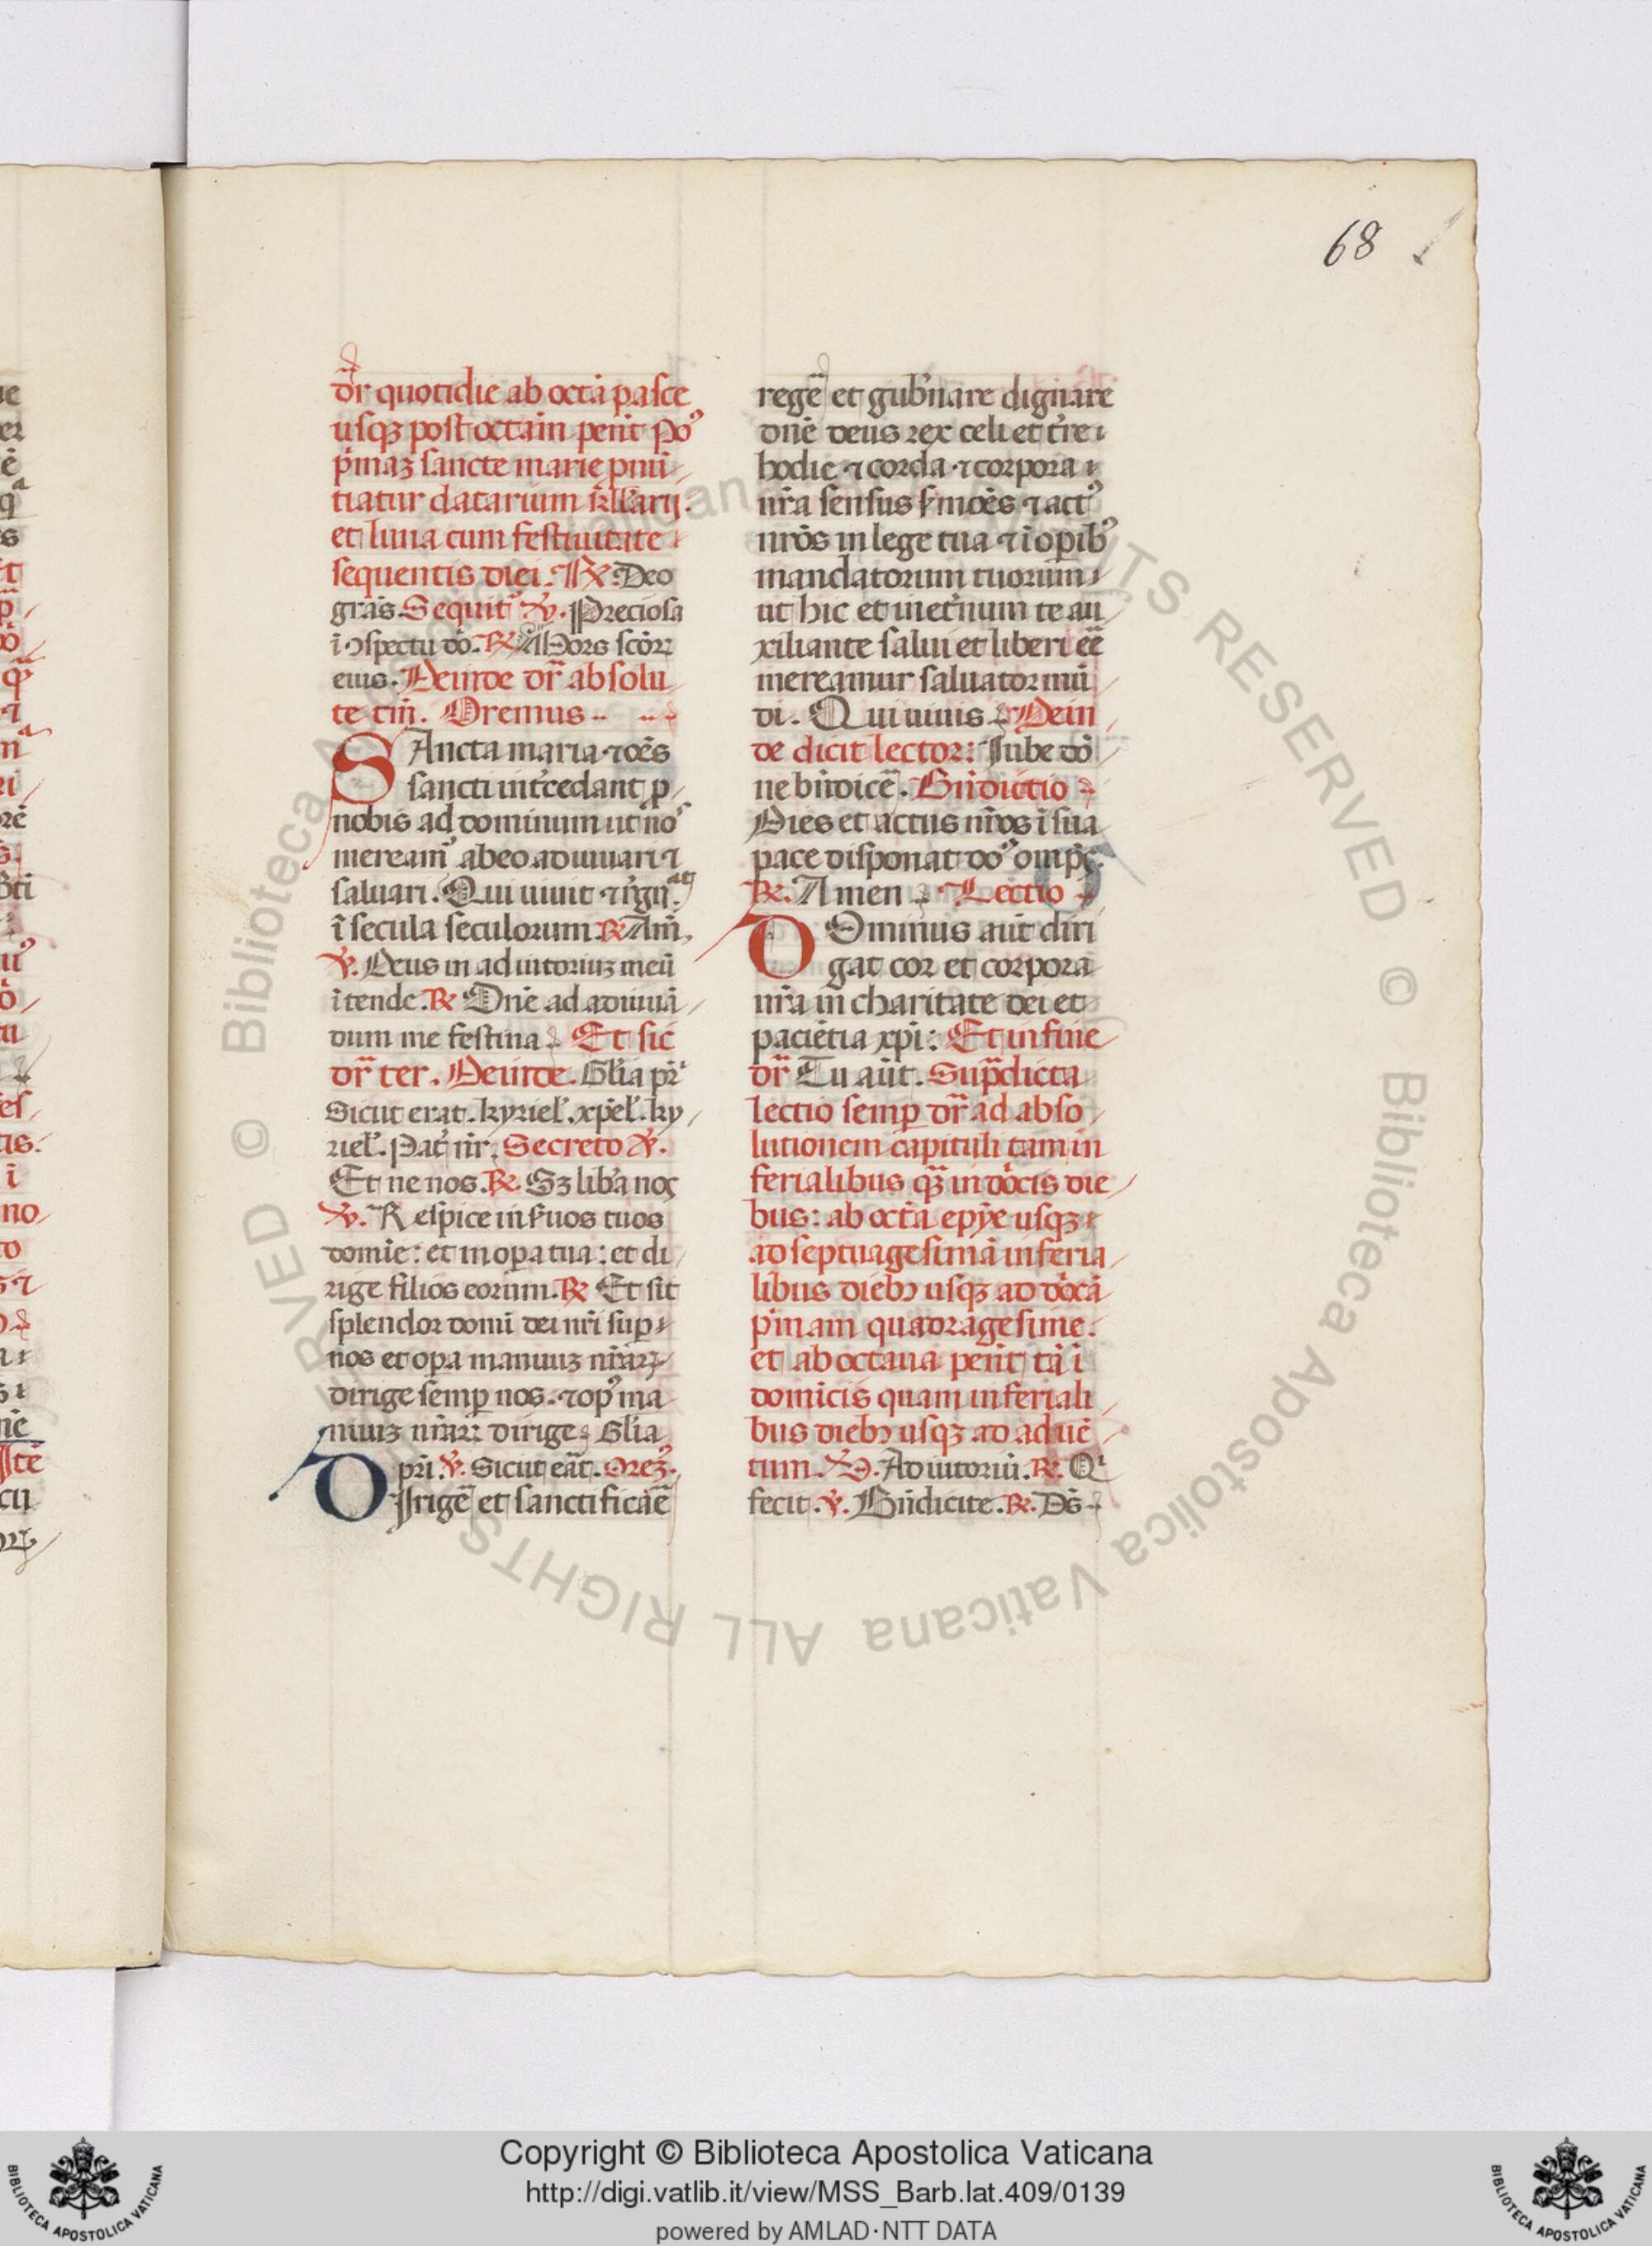 68
dr̄ quotidie ab octā pasce
usqꝫ post octam pent̄ Po᷒
p̄maꝫ sancte marie pnū
tiatur datarium kllarij.
et luna cum festiuitate
sequentis diei. ℟. Deo
grās. Sequit᷒ ℣. Preciosa
ī ↄspectu dō. ℟. Mors scōꝝ
eius. Deinde dr̄ absolu
te tm̄. Oremus
SAncta maria ⁊ oēs
sancti int̄cedant p
nobis ad dominum ut no᷒
meream᷒ ab eo adiuuari ⁊
saluari. Qui uiuit ⁊ rḡn.
ī secula seculorum ℟ Am̄.
℣. Deus in adiutoriuꝫ meū
ītende. ℟ Dnē ad adiuuā
dum me festina. Et sic
dr̄ ter. Deinde. Glīa pr̄i
Sicut erat. kyriel̄. xp̄el̄. ky
riel̄. Pat̄ nr̄. Secreto ℣.
Et ne nos. ℟. Sꝫ lib̄a nos
℣. Respice in s̄uos tuos
domīe: et in oꝑa tua: et di
rige filios eorum. ℟ Et sit
splendor domī dei nrī suꝑ
nos et oꝑa manuuꝫ nr̄aꝝ
dirige semꝑ nos. ⁊ op᷒ ma
nuuꝫ nr̄aꝝ dirige. Glīa
pr̄i. ℣. Sicut eāt. Oreꝫ᷒.
DIrigē et sanctificāē
regē et gub̄nare dignare
dnē deus rex celi et t̄re
hodie ⁊ corda ⁊ corpora
nr̄a sensus s̄moēs ⁊ act᷒
nrōs in lege tua ⁊ ī oꝑib᷒
mandatorum tuorum
ut hic et inet̄num te au
xiliante salui et liberi eē
mereamur saluator mū
di. Qui uiuis. Dein
de dicit lector: Iube dō
ne bn̄dicē. Bn̄dictio
Dies et actus nr̄os ī sua
pace disponat do᷒ omp̄s.
℟. Amen. Lectio
DOminus aūt diri
gat cor et corpora
nr̄a in charitate dei et
paciētia xp̄i: Et in fine
dr̄ Tu aūt. Sup̄dicta
lectio semꝑ dr̄ ad abso
lutionem capituli tam in
ferialibus qꝫ̄ in dōcis die
bus: ab octā epye usqꝫ
ad septuagesimā in feria
libus diebꝫ usqꝫ ad dōcā
p̄mam quadragesime.
et ab octaua pent̄ tā ī
domīcis quam in feriali
bus diebꝫ usqꝫ ad aduē
tum. ℣. Adiutoriū. ℟. Qi
fecit. ℣. Bn̄dicite. ℟. Dn̄s
© Biblioteca Apostolica Vaticana ALL RIGHTS RESERVED © Biblioteca Apostolica Vaticana ALL RIGHTS RESERVED
Copyright © Biblioteca Apostolica Vaticana
http://digi.vatlib.it/view/MSS_Barb.lat.409/0139
powered by AMLAD·NTT DATA
BIBLIOTECA APOSTOLICA VATICANA
BIBLIOTECA APOSTOLICA VATICANA